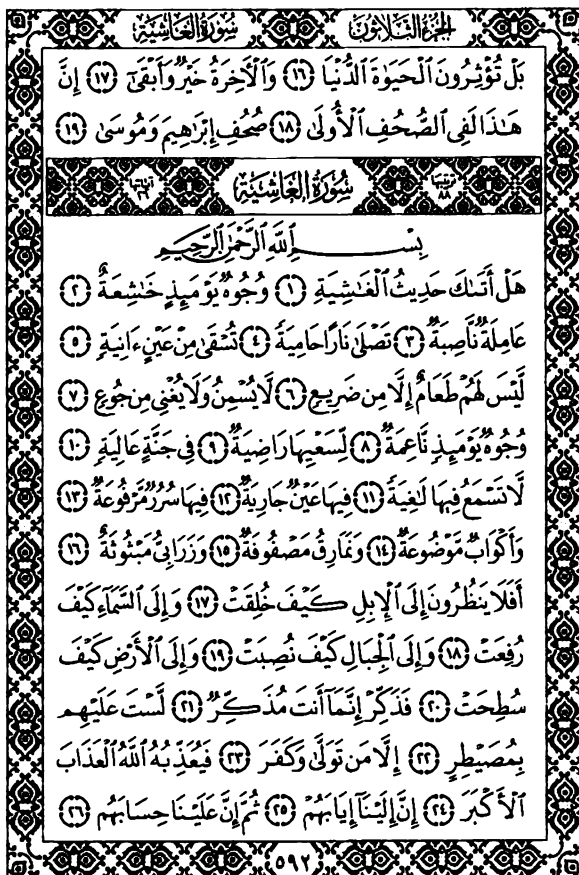 الجزء الثلاثون سورة الغاشية
بَلْ تُؤْثِرُونَ ٱلْحَيَوٰةَ ٱلدُّنْيَا ١٦ وَٱلْأَخِرَةُ خَيْرٌ وَأَبْقَىٰٓ ١٧ إِنَّ
هَٰذَا لَفِى ٱلصُّحُفِ ٱلْأُولَىٰ ١٨ صُحُفِ إِبْرَٰهِيمَ وَمُوسَىٰ ١٩
ترتيبها ٨٨ سُورَةُ الغَاشِيَةِ آياتها ٢٦
بِسْمِ ٱللَّهِ ٱلرَّحْمَٰنِ ٱلرَّحِيمِ
هَلْ أَتَىٰكَ حَدِيثُ ٱلْغَٰشِيَةِ ١ وُجُوهٌ يَوْمَئِذٍ خَٰشِعَةٌ ٢
عَامِلَةٌ نَّاصِبَةٌ ٣ تَصْلَىٰ نَارًا حَامِيَةً ٤ تُسْقَىٰ مِنْ عَيْنٍ ءَانِيَةٍ ٥
لَّيْسَ لَهُمْ طَعَامٌ إِلَّا مِن ضَرِيعٍ ٦ لَّا يُسْمِنُ وَلَا يُغْنِى مِن جُوعٍ ٧
وُجُوهٌ يَوْمَئِذٍ نَّاعِمَةٌ ٨ لِّسَعْيِهَا رَاضِيَةٌ ٩ فِى جَنَّةٍ عَالِيَةٍ ١٠
لَّا تَسْمَعُ فِيهَا لَٰغِيَةً ١١ فِيهَا عَيْنٌ جَارِيَةٌ ١٢ فِيهَا سُرُرٌ مَّرْفُوعَةٌ ١٣
وَأَكْوَابٌ مَّوْضُوعَةٌ ١٤ وَنَمَارِقُ مَصْفُوفَةٌ ١٥ وَزَرَابِىُّ مَبْثُوثَةٌ ١٦
أَفَلَا يَنظُرُونَ إِلَى ٱلْإِبِلِ كَيْفَ خُلِقَتْ ١٧ وَإِلَى ٱلسَّمَآءِ كَيْفَ
رُفِعَتْ ١٨ وَإِلَى ٱلْجِبَالِ كَيْفَ نُصِبَتْ ١٩ وَإِلَى ٱلْأَرْضِ كَيْفَ
سُطِحَتْ ٢٠ فَذَكِّرْ إِنَّمَآ أَنتَ مُذَكِّرٌ ٢١ لَّسْتَ عَلَيْهِم
بِمُصَيْطِرٍ ٢٢ إِلَّا مَن تَوَلَّىٰ وَكَفَرَ ٢٣ فَيُعَذِّبُهُ ٱللَّهُ ٱلْعَذَابَ
ٱلْأَكْبَرَ ٢٤ إِنَّ إِلَيْنَآ إِيَابَهُمْ ٢٥ ثُمَّ إِنَّ عَلَيْنَا حِسَابَهُم ٢٦
٥٩٢